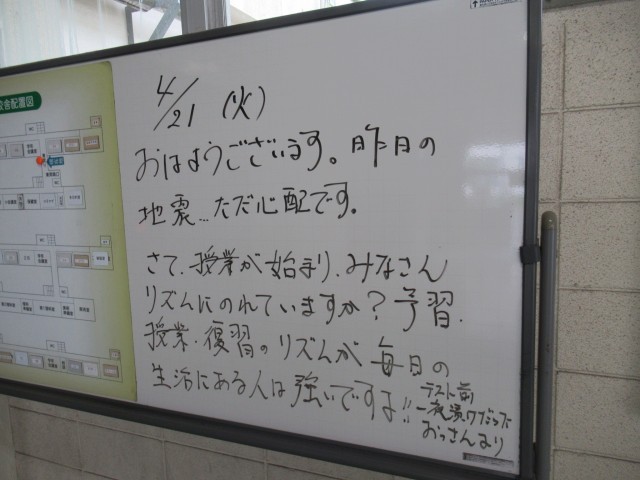 校舎配置図
4/21 (火)
おはようございます。昨日の
地震…ただ心配です。
さて、授業が始まり、みなさん
リズムにのれていますか？予習.
授業.復習のリズムが毎日の
生活にある人は強いですよ!!
テスト前
一夜漬けだった
おっさんより